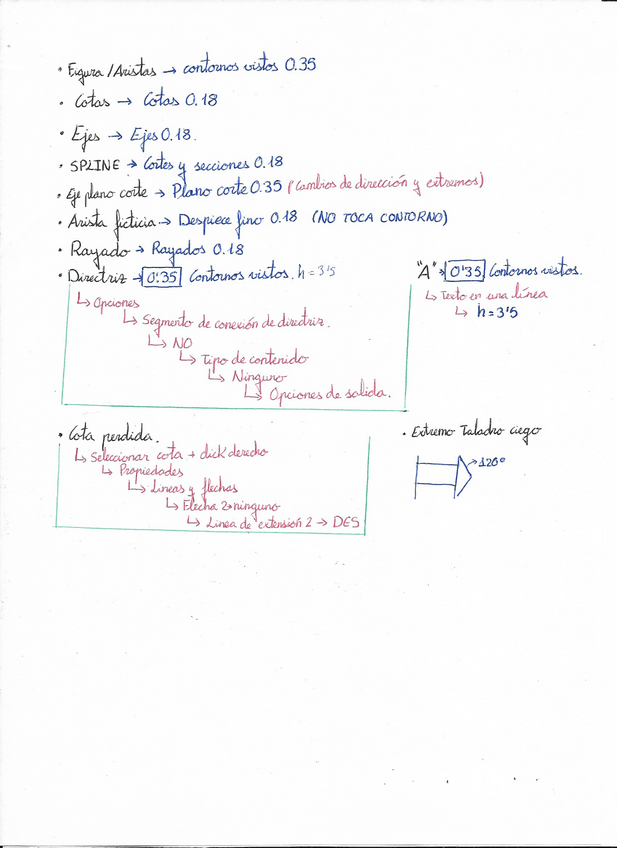 · Figura / Aristas → contornos vistos 0.35
· Cotas → Cotas 0.18
· Ejes → Ejes 0.18.
· SPLINE → Cortes y secciones 0.18
· Eje plano corte → Plano corte 0.35 (Cambios de dirección y extremos)
· Arista ficticia → Despiece fino 0.18 (NO TOCA CONTORNO)
· Rayado → Rayados 0.18
· Directriz → 0'35 Contornos vistos. h = 3'5
↳ Opciones
↳ Segmento de conexión de directriz.
↳ NO
↳ Tipo de contenido
↳ Ninguno
↳ Opciones de salida.
"A" → 0'35 Contornos vistos.
↳ Texto en una línea
↳ h = 3'5
· Cota perdida.
↳ Seleccionar cota + click derecho
↳ Propiedades
↳ Lineas y flechas
↳ Flecha 2 → ninguno
↳ Linea de extensión 2 → DES
· Extremo Taladro ciego
→ 120º